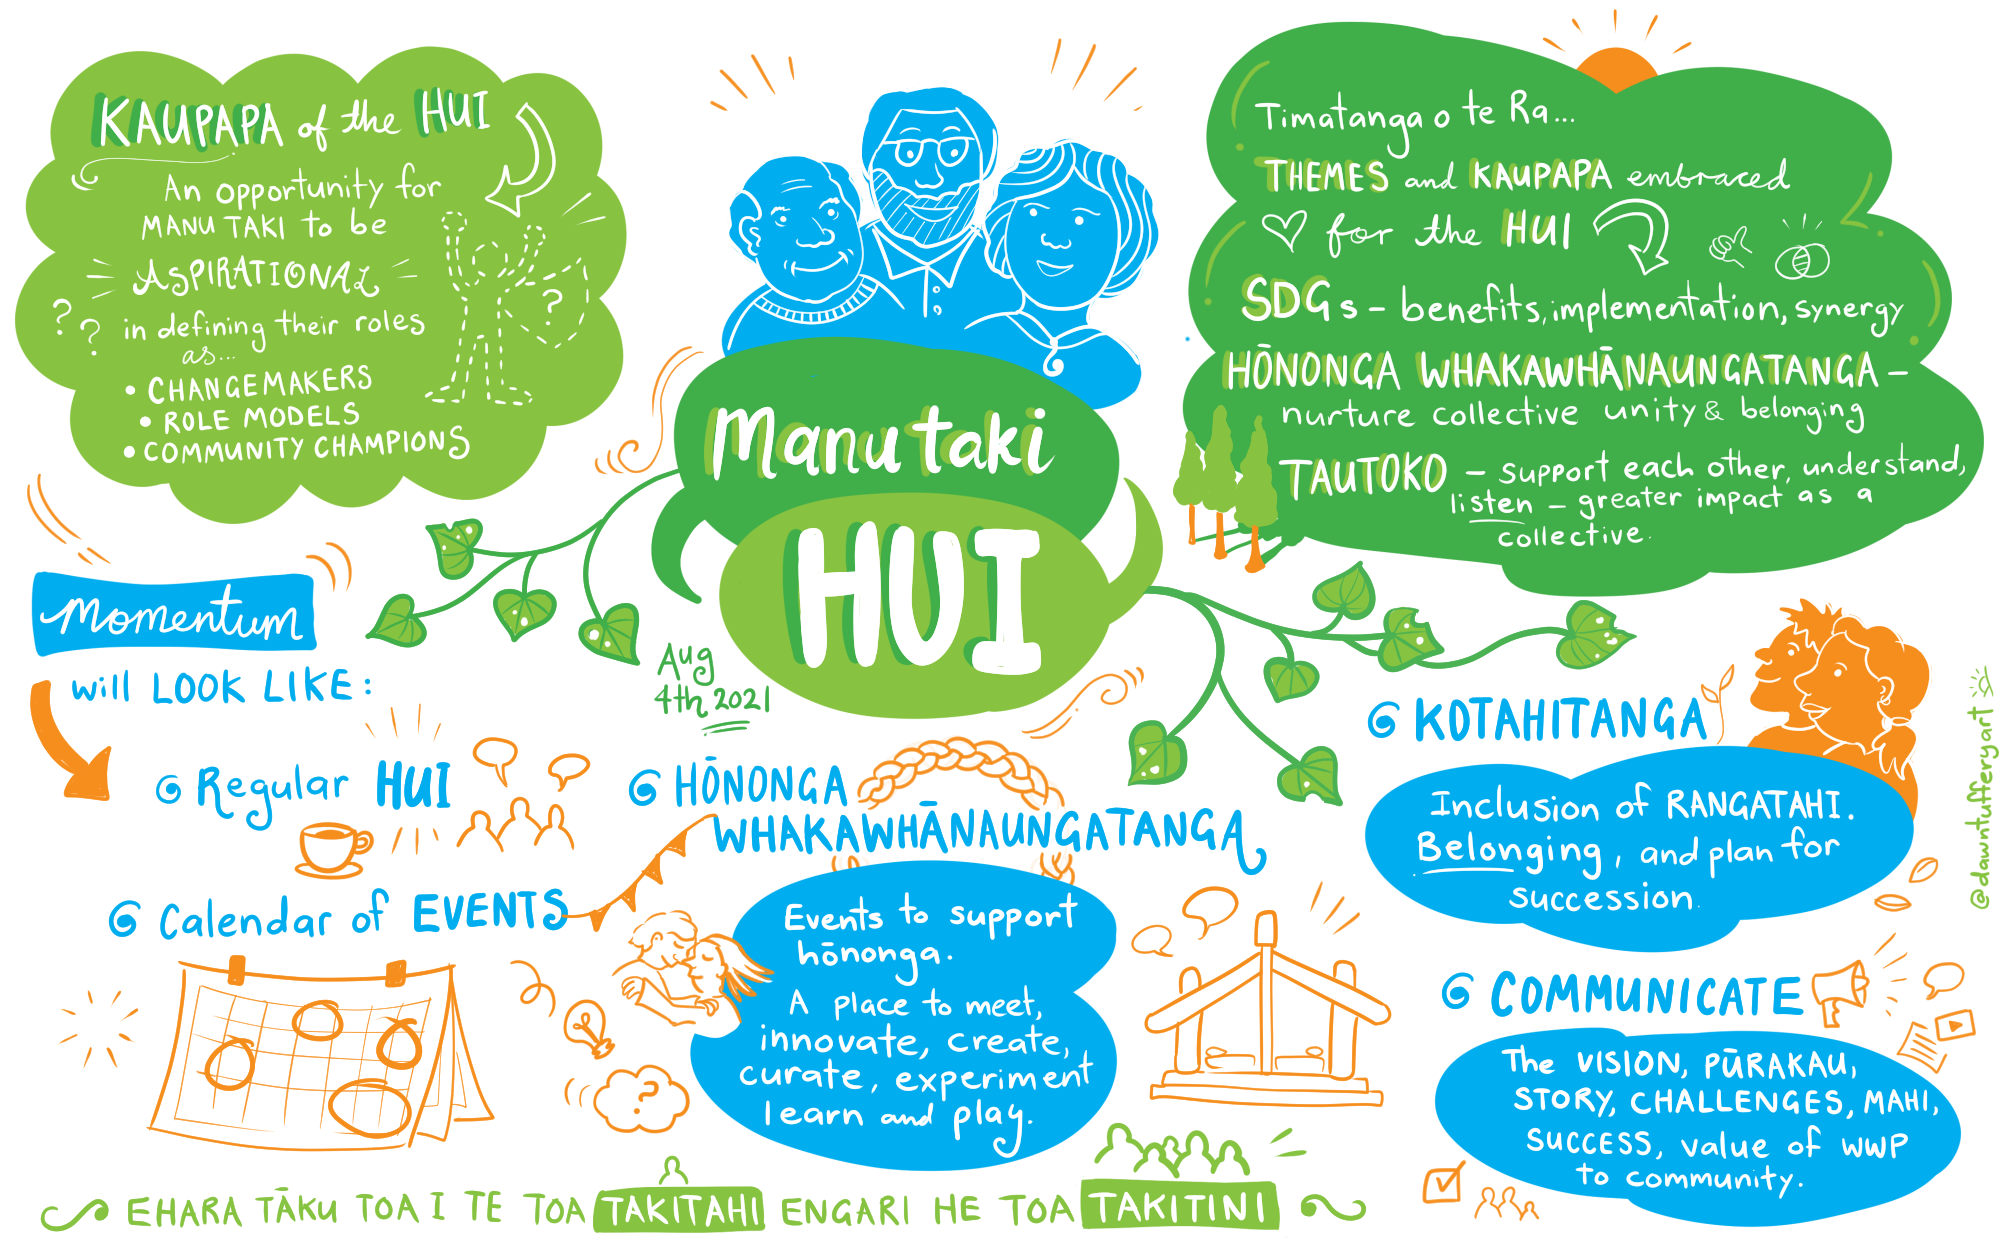 KAUPAPA of the HUI
An opportunity for
MANU TAKI to be
ASPIRATIONAL
in defining their roles
as...
• CHANGEMAKERS
• ROLE MODELS
• COMMUNITY CHAMPIONS
? ?
?
Manu taki
HUI
Aug
4th 2021
Timatanga o te Ra...
THEMES and KAUPAPA embraced
for the HUI
SDGs - benefits, implementation, synergy
HŌNONGA WHAKAWHĀNAUNGATANGA -
nurture collective unity & belonging
TAUTOKO - support each other, understand,
listen - greater impact as a
collective.
Momentum
will LOOK LIKE:
Regular HUI
Calendar of EVENTS
HŌNONGA
WHAKAWHĀNAUNGATANGA
Events to support
hōnonga.
A place to meet,
innovate, create,
curate, experiment
learn and play.
?
KOTAHITANGA
Inclusion of RANGATAHI.
Belonging, and plan for
succession.
COMMUNICATE
The VISION, PŪRAKAU,
STORY, CHALLENGES, MAHI,
SUCCESS, value of WWP
to community.
@dawntufferyart
EHARA TĀKU TOA I TE TOA TAKITAHI ENGARI HE TOA TAKITINI